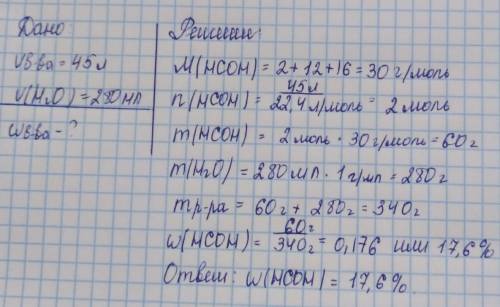 Дано
Vв-ва = 45 л
V(H₂O) = 280 мл
ωв-ва - ?
Решение:
M(HCOH) = 2 + 12 + 16 = 30 г/моль
n(HCOH) = 45л / 22,4 л/моль = 2 моль
m(HCOH) = 2 моль · 30 г/моль = 60 г
m(H₂O) = 280 мл · 1 г/мл = 280 г
mр-ра = 60 г + 280 г = 340 г
ω(HCOH) = 60г / 340 г = 0,176 или 17,6 %
Ответ: ω(HCOH) = 17,6 %